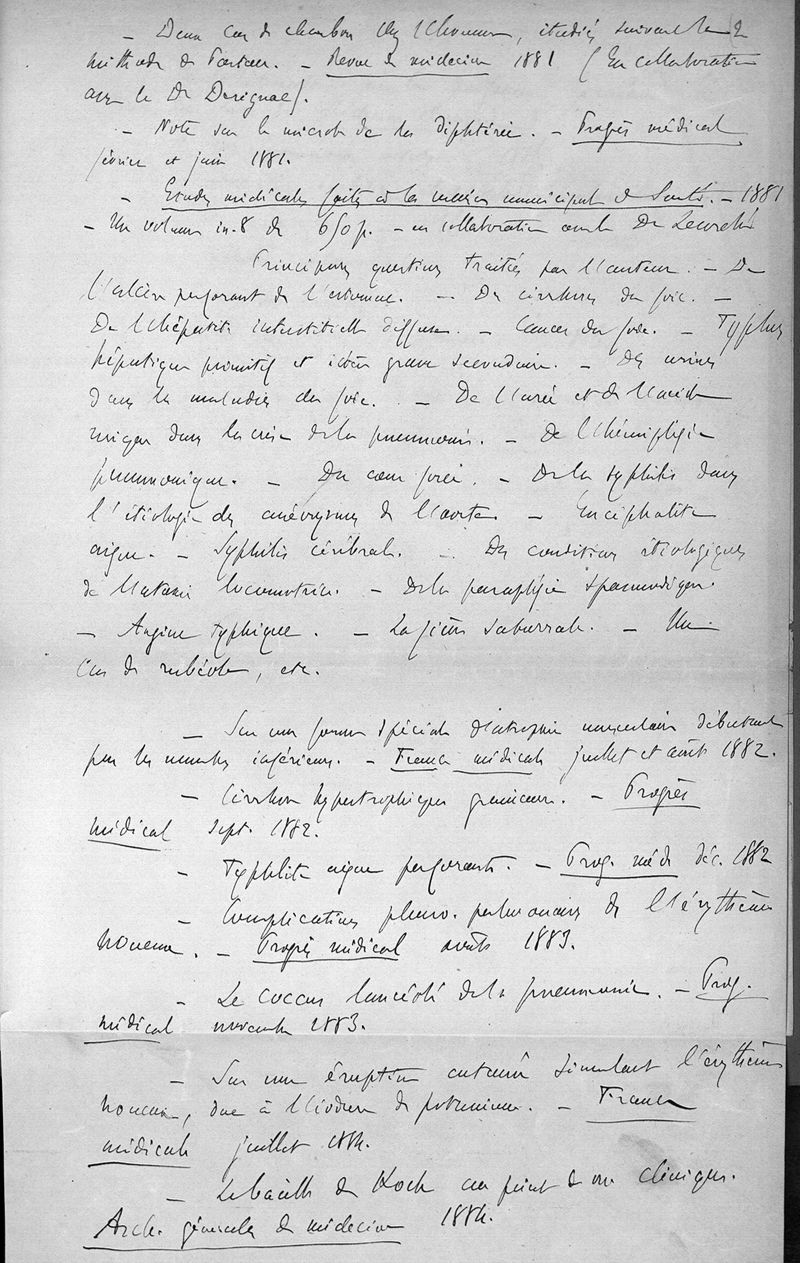 — Deux cas de charbon chez l'homme, étudiés suivant la 2
méthode de Pasteur. — Revue de médecine 1881 (En collaboration
avec le Dr Derignac).
— Note sur le microbe de la diphtérie. — Progrès médical,
février et juin 1881.
— Etudes médicales faites à la maison municipale de Santé. — 1881
— Un volume in-8 de 650 p. — en collaboration avec le Dr Lecorché
Principales questions traitées par l'auteur. — De
l'ulcère perforant de l'estomac. — Des cirrhoses du foie. —
De l'hépatite interstitielle diffuse. — Cancer du foie. — Typhus
hépatique primitif et ictère grave secondaire. — Des urines
dans les maladies du foie. — De l'urée et de l'acide
urique dans la crise de la pneumonie. — De l'hémiplégie
pneumonique. — Du cœur forcé. — De la syphilis dans
l'étiologie des anévrysmes de l'aorte — Encéphalite
aigue. — Syphilis cérébrale. — Des conditions étiologiques
de l'ataxie locomotrice. — De la paraplégie spasmodique.
— Angine typhique. — La fièvre saburrale. — Un
cas de rubéole, etc.
— Sur une forme spéciale d'atrophie musculaire débutant
par les membres inférieurs. — France médicale juillet et août 1882.
— Cirrhose hypertrophique graisseuse. — Progrès
médical sept. 1882.
— Typhlite aigue perforante. — Prog. méd. déc. 1882
— Complications pleuro-pulmonaires de l'érythème
noueux. — Progrès médical août 1883.
— Le coccus lancéolé de la pneumonie. — Prog.
médical novembre 1883.
— Sur une éruption cutanée simulant l'érythème
noueux, due à l'iodure de potassium. — France
médicale juillet 1884.
— Le bacille de Koch au point de vue clinique.
Arch. générales de médecine 1884.